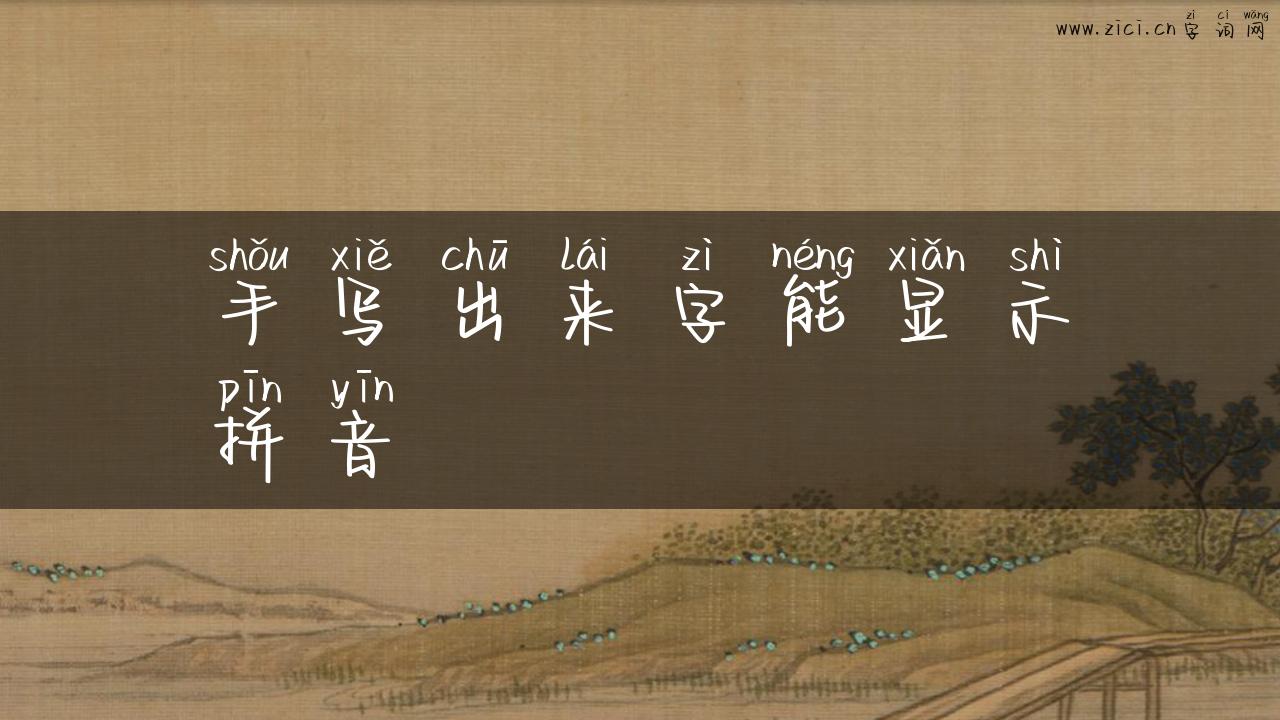 zì cí wǎng
www.zici.cn 字词网
shǒu xiě chū lái zì néng xiǎn shì
手写出来字能显示
pīn yīn
拼音